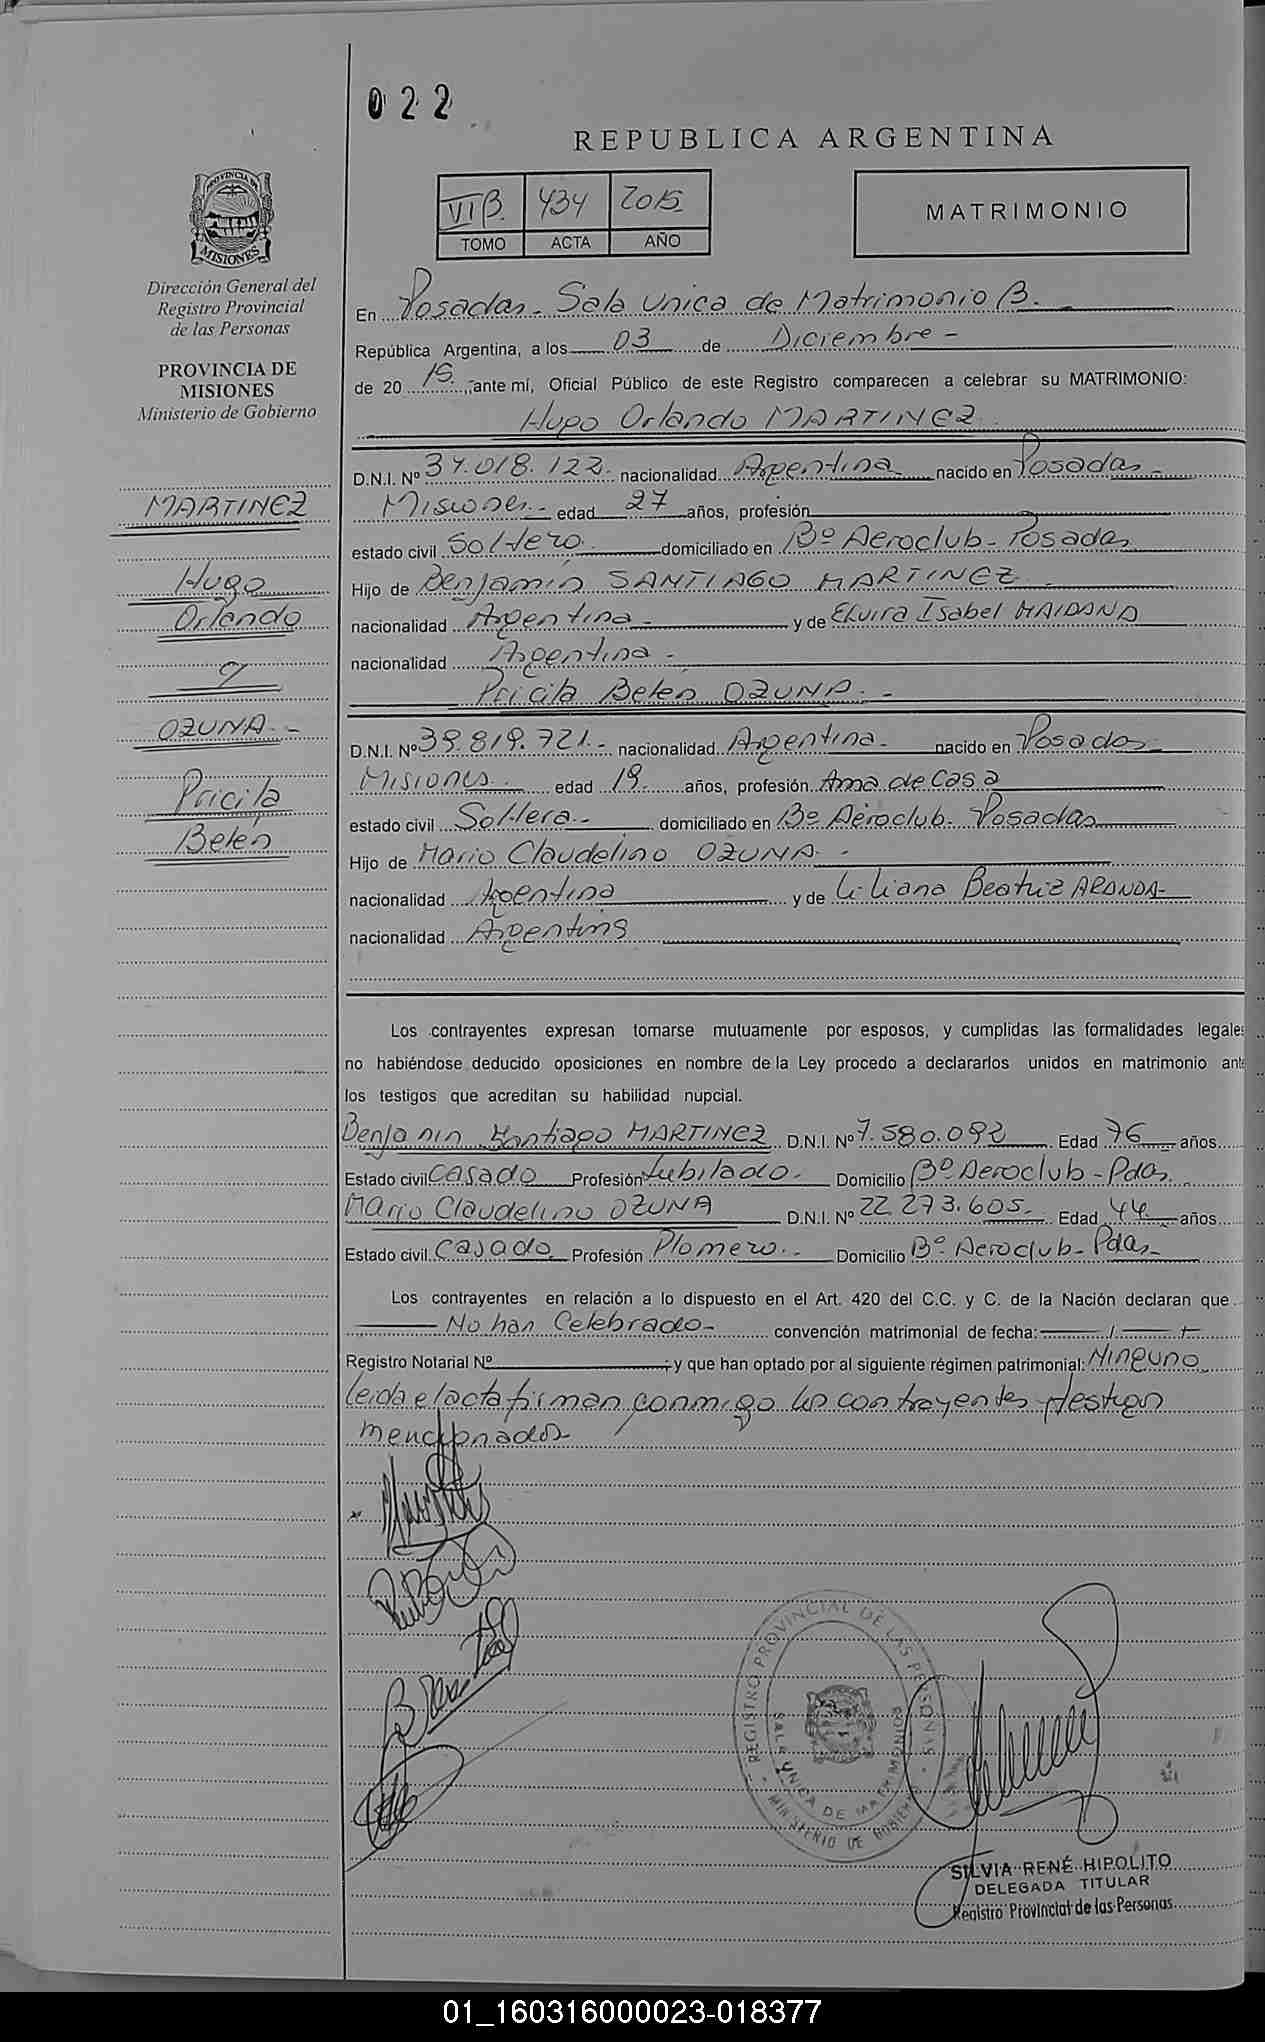 022
REPUBLICA ARGENTINA
VI B. 434 2015
TOMO ACTA AÑO
MATRIMONIO
PROVINCIA DE
MISIONES
Dirección General del
Registro Provincial
de las Personas
PROVINCIA DE
MISIONES
Ministerio de Gobierno
MARTINEZ
Hugo
Orlando
y
OZUNA.-
Pricila
Belén
En Posadas - Sala Unica de Matrimonio B.
República Argentina, a los 03 de Diciembre -
de 20 15 , ante mí, Oficial Público de este Registro comparecen a celebrar su MATRIMONIO:
Hugo Orlando MARTINEZ
D.N.I. Nº 34.018.122. nacionalidad Argentina nacido en Posadas -
Misiones.- edad 27 años, profesión
estado civil Soltero. domiciliado en Bº Aeroclub - Posadas
Hijo de Benjamín SANTIAGO MARTINEZ
nacionalidad Argentina - y de Elvira Isabel MAIDANA
nacionalidad Argentina -
Pricila Belén OZUNA. -
D.N.I. Nº 39.819.721.- nacionalidad Argentina - nacido en Posadas
Misiones edad 19 años, profesión Ama de Casa
estado civil Soltera - domiciliado en Bº Aeroclub - Posadas
Hijo de Mario Claudelino OZUNA -
nacionalidad Argentina y de Liliana Beatriz ARANDA-
nacionalidad Argentina
Los contrayentes expresan tomarse mutuamente por esposos, y cumplidas las formalidades legales
no habiéndose deducido oposiciones en nombre de la Ley procedo a declararlos unidos en matrimonio ante
los testigos que acreditan su habilidad nupcial.
Benjamin Santiago MARTINEZ D.N.I. Nº 7.580.092 Edad 76 años
Estado civil Casado Profesión Jubilado - Domicilio Bº Aeroclub - Pdas.
Mario Claudelino OZUNA D.N.I. Nº 22.273.605.- Edad 44 años
Estado civil Casado Profesión Plomero.- Domicilio Bº Aeroclub - Pdas
Los contrayentes en relación a lo dispuesto en el Art. 420 del C.C. y C. de la Nación declaran que
No han Celebrado - convención matrimonial de fecha: / /
Registro Notarial Nº ; y que han optado por al siguiente régimen patrimonial: Ninguno
Leida el acta firman conmigo los contrayentes y testigos
mencionados
REGISTRO PROVINCIAL DE LAS PERSONAS
SALA UNICA DE MATRIMONIO
MINISTERIO DE GOBIERNO
SILVIA RENÉ HIPOLITO
DELEGADA TITULAR
Registro Provincial de las Personas
01_160316000023-018377